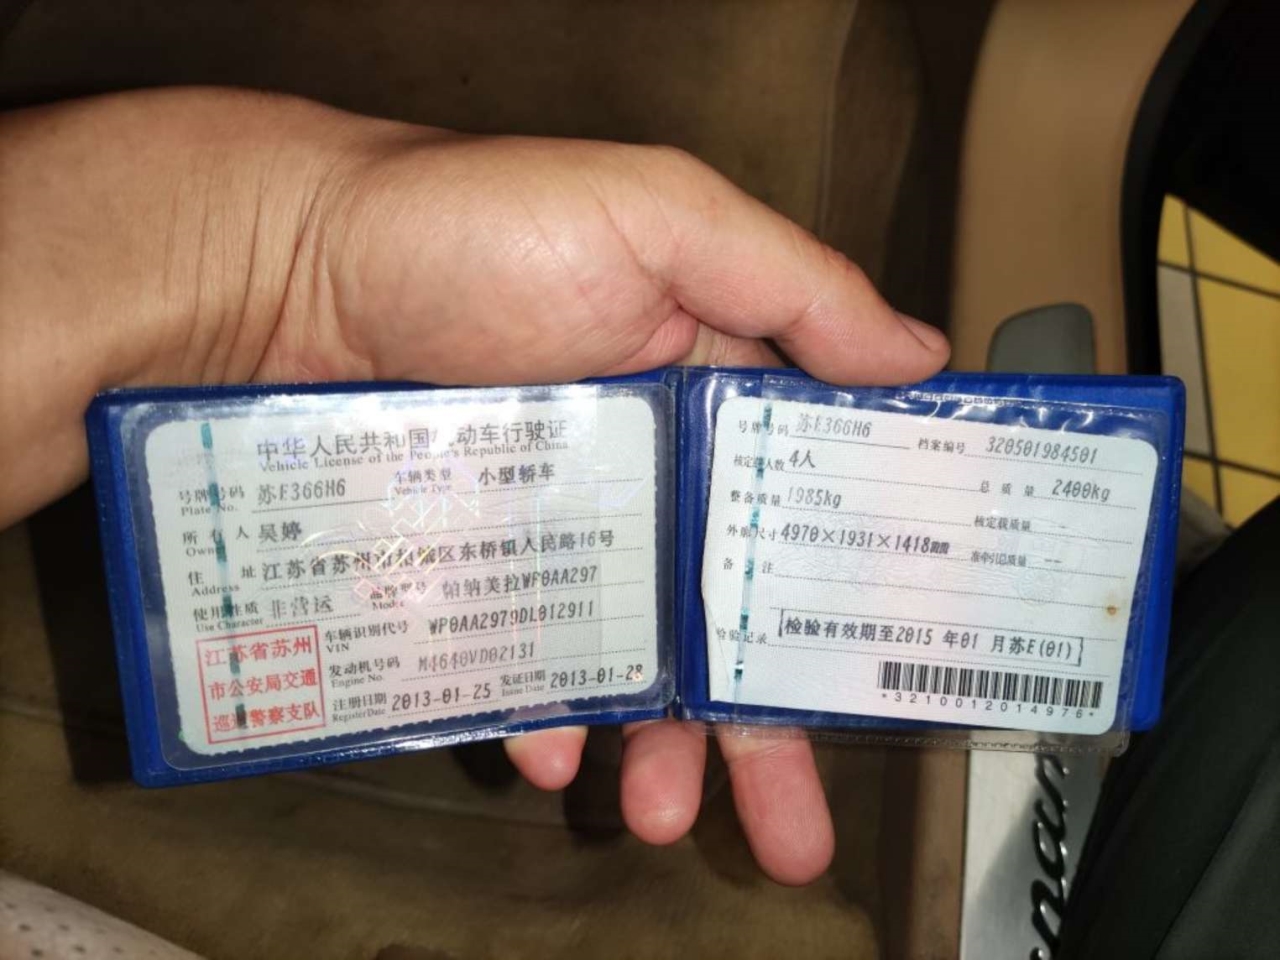 中华人民共和国 动车行驶证
Vehicle License of the People's Republic of China
号牌号码 苏E366H6 车辆类型 小型轿车
Plate No. Vehicle Type
所有人 吴婷
Owner
住址 江苏省苏州市相城区东桥镇人民路16号
Address
使用性质 非营运 品牌型号 帕纳美拉WP0AA297
Use Character Model
江苏省苏州
市公安局交通
巡逻警察支队
车辆识别代号 WP0AA2979DL012911
VIN
发动机号码 M4640VD02131
Engine No.
注册日期 2013-01-25 发证日期 2013-01-28
Register Date Issue Date
号牌号码 苏E366H6 档案编号 320501984501
核定载人数 4人 总质量 2400kg
整备质量 1985kg 核定载质量 --
外廓尺寸 4970×1931×1418mm 准牵引总质量 --
备注
检验记录 检验有效期至2015年01月苏E(01)
*3210012014976*